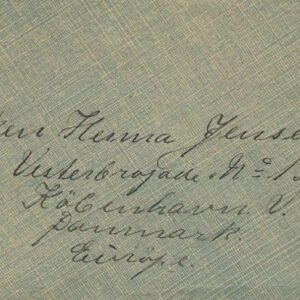 Herma Jense
Vesterbrogade. No. 1
København. V.
Danmark.
Europe.